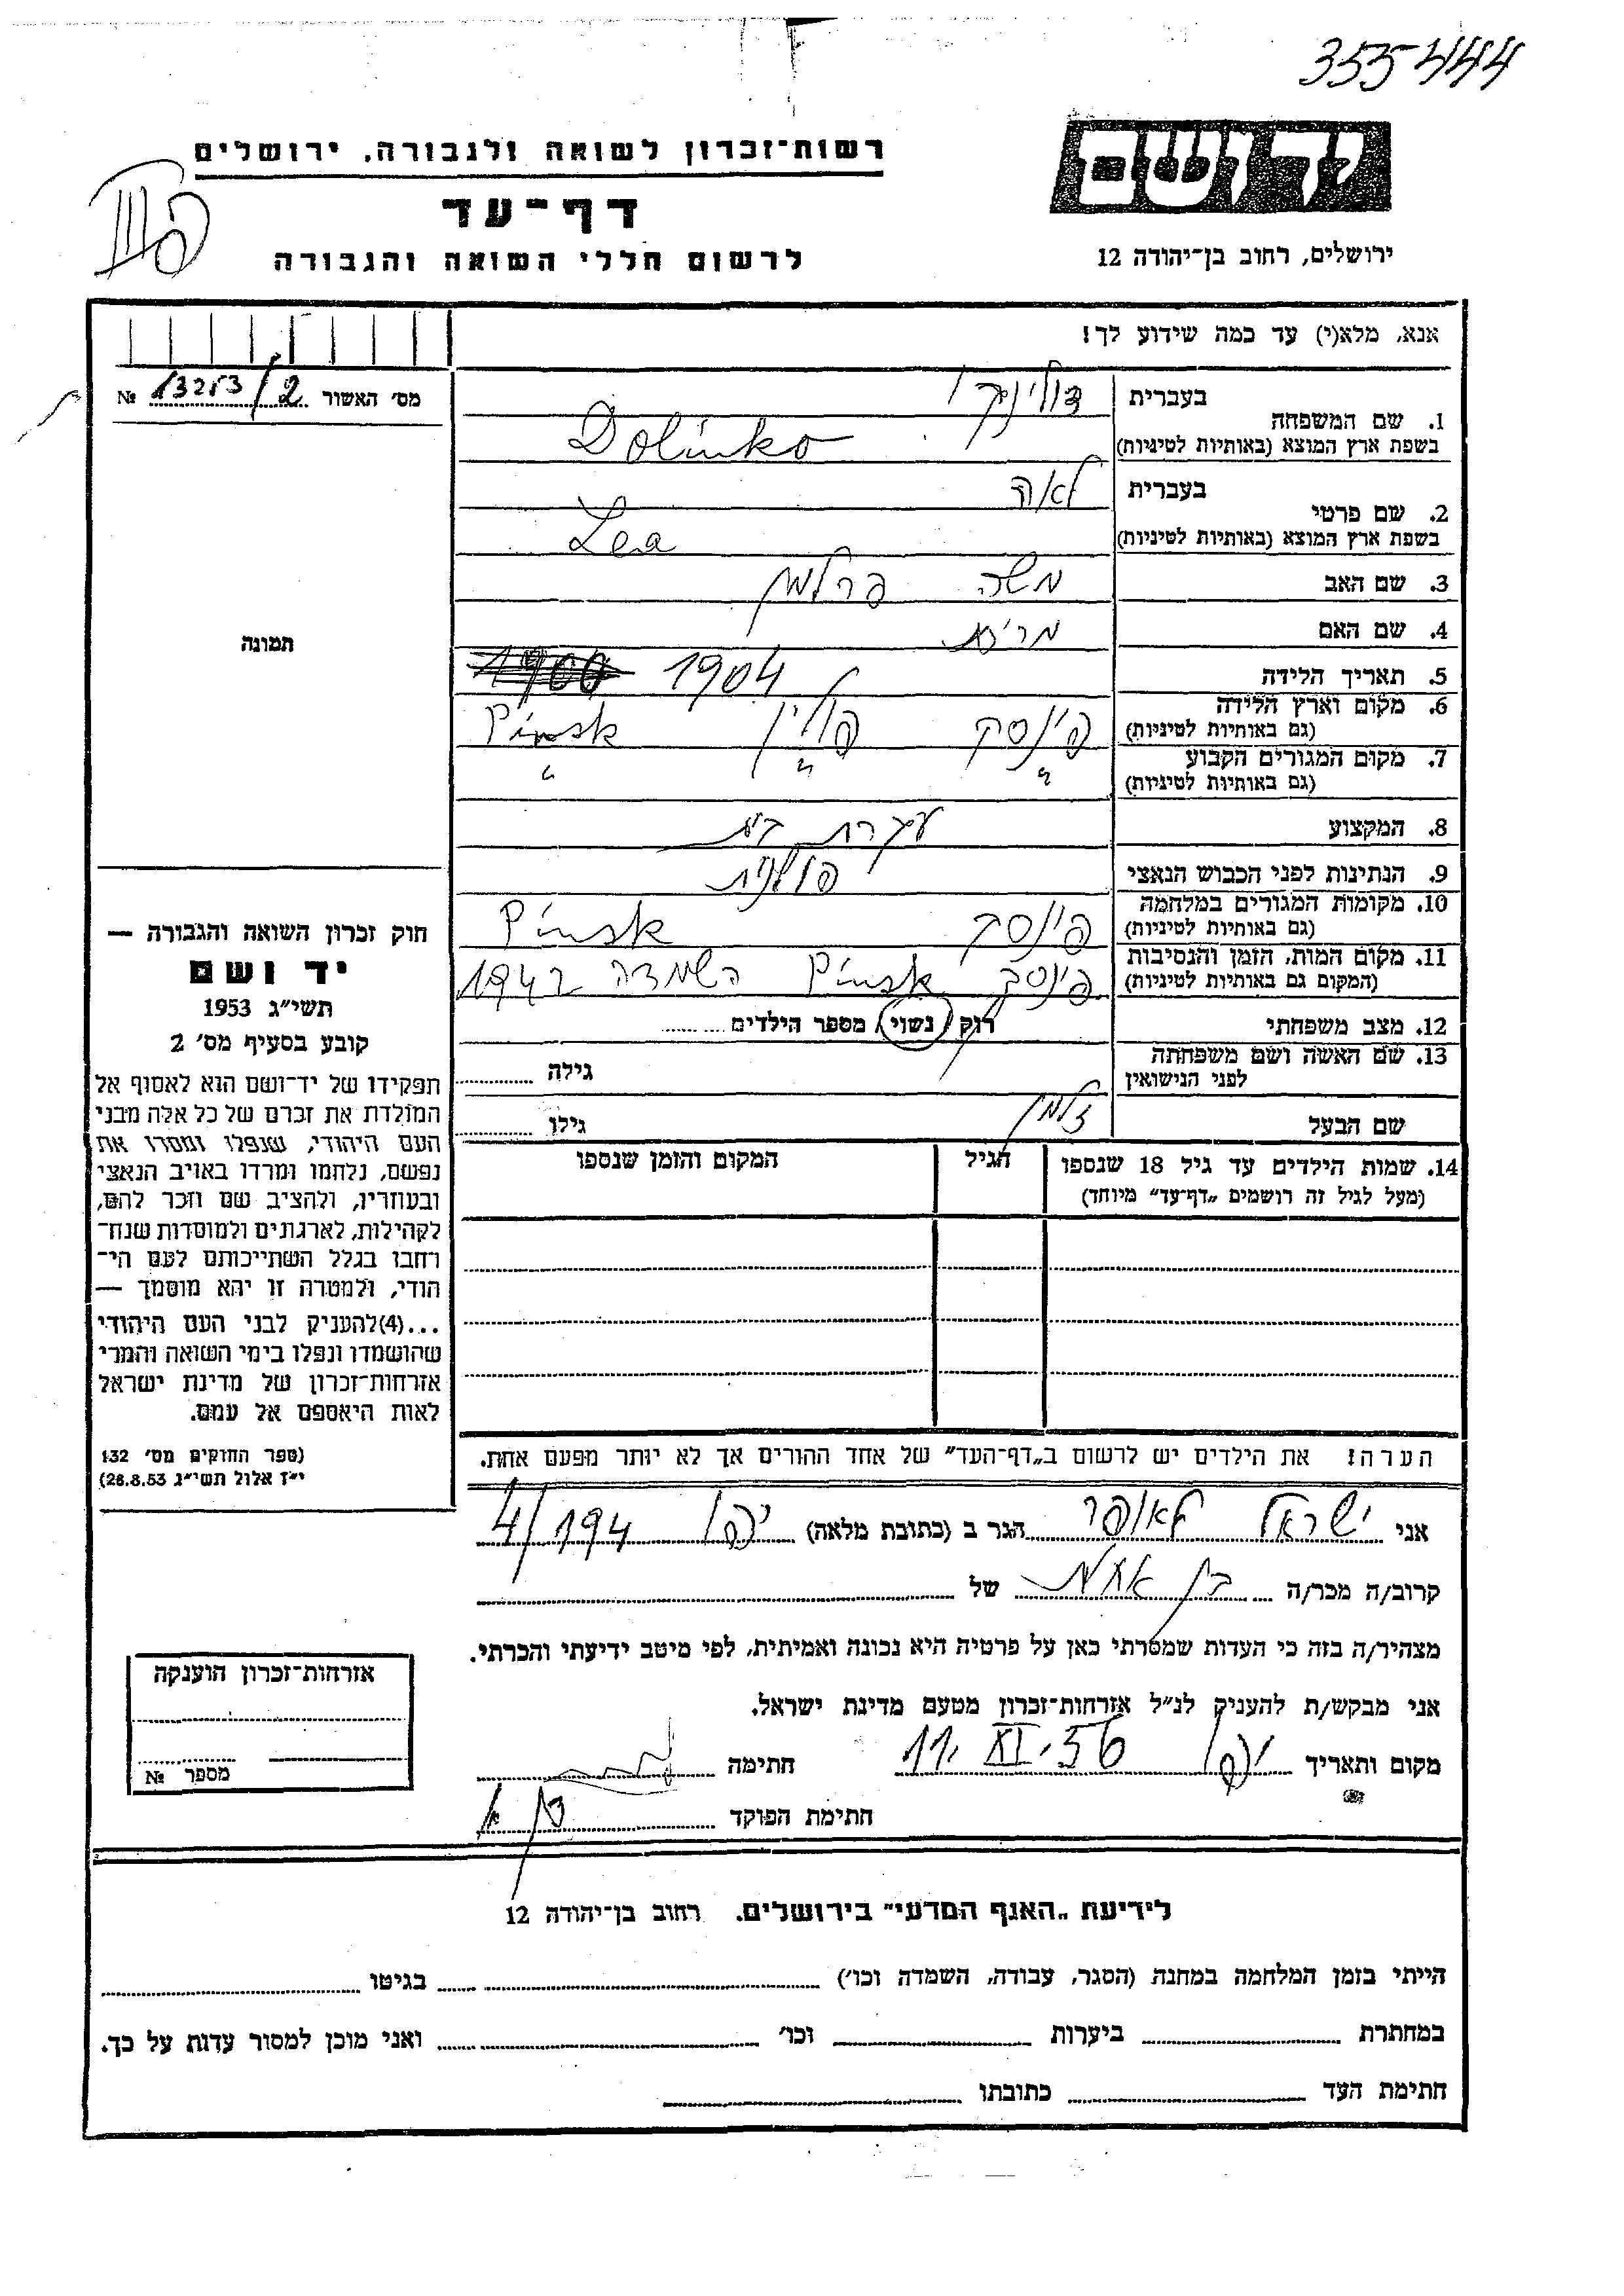 355444
רשות־זכרון לשואה ולגבורה, ירושלים
יד ושם
דף־עד
לרשום חללי השואה והגבורה
ירושלים, רחוב בן־יהודה 12
אנא, מלא(י) עד כמה שידוע לך!
מס׳ האשור 13253/2 №
1. שם המשפחה
בעברית דולינקו
בשפת ארץ המוצא (באותיות לטיניות) Dolinko
2. שם פרטי
בעברית לאה
בשפת ארץ המוצא (באותיות לטיניות) Lea
3. שם האב משה פרלמן
4. שם האם
5. תאריך הלידה 1904 1900
6. מקום וארץ הלידה
(גם באותיות לטיניות) פינסק פולין Pinsk
7. מקום המגורים הקבוע
(גם באותיות לטיניות) " " "
8. המקצוע עקרת בית
9. הנתינות לפני הכבוש הנאצי פולנית
10. מקומות המגורים במלחמה
(גם באותיות לטיניות) פינסק Pinsk
11. מקום המות, הזמן והנסיבות
(המקום גם באותיות לטיניות) פינסק Pinsk השמדה 1942
12. מצב משפחתי רוק / נשוי / מספר הילדים
13. שם האשה ושם משפחתה
לפני הנישואין
גילה
שם הבעל זלמן גילו
14. שמות הילדים עד גיל 18 שנספו
(מעל לגיל זה רושמים „דף־עד״ מיוחד)
הגיל
המקום והזמן שנספו
הערה! את הילדים יש לרשום ב„דף־העד״ של אחד ההורים אך לא יותר מפעם אחת.
תמונה
חוק זכרון השואה והגבורה —
יד ושם
תשי״ג 1953
קובע בסעיף מס׳ 2
תפקידו של יד־ושם הוא לאסוף אל
המולדת את זכרם של כל אלה מבני
העם היהודי, שנפלו ומסרו את
נפשם, נלחמו ומרדו באויב הנאצי
ובעוזריו, ולהציב שם וזכר להם,
לקהילות, לארגונים ולמוסדות שנח־
רחבו בגלל השתייכותם לעם הי־
הודי, ולמטרה זו יהא מוסמך —
...(4)להעניק לבני העם היהודי
שהושמדו ונפלו בימי השואה והמרי
אזרחות־זכרון של מדינת ישראל
לאות היאספם אל עמם.
(ספר החוקים מס׳ 132
י״ז אלול תשי״ג 28.8.53)
אני ישראל לאופר הגר ב (כתובת מלאה) יפו 194/4
קרוב/ה מכר/ה בן אחות של
מצהיר/ה בזה כי העדות שמסרתי כאן על פרטיה היא נכונה ואמיתית, לפי מיטב ידיעתי והכרתי.
אני מבקש/ת להעניק לנ״ל אזרחות־זכרון מטעם מדינת ישראל.
מקום ותאריך יפו 11. XI. 56 חתימה
חתימת הפוקד
אזרחות־זכרון הוענקה
מספר №
לידיעת „האגף המדעי״ בירושלים, רחוב בן־יהודה 12
הייתי בזמן המלחמה במחנה (הסגר, עבודה, השמדה וכו׳) בגיטו
במחתרת ביערות וכו׳ ואני מוכן למסור עדות על כך.
חתימת העד כתובתו